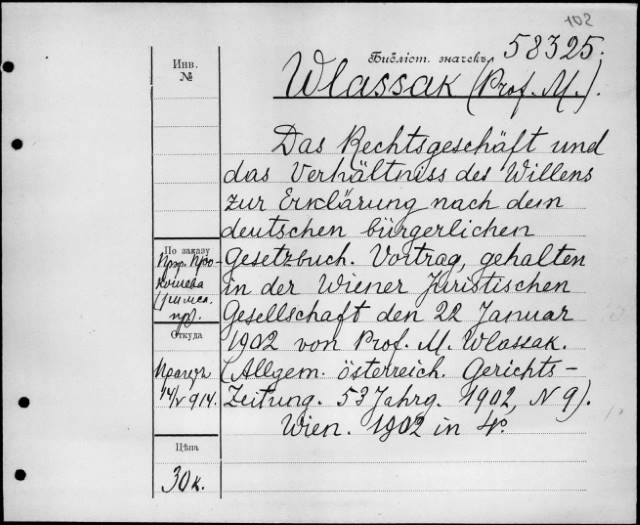 102
Библіот. значекъ 58325.
Инв.
№
Wlassak (Prof. M.).
Das Rechtsgeschäft und
das Verhältniss des Willens
zur Erklärung nach dem
deutschen bürgerlichen
Gesetzbuch. Vortrag, gehalten
in der Wiener Juristischen
Gesellschaft den 22 Januar
1902 von Prof. M. Wlassak.
(Allgem. österreich. Gerichts-
Zeitung. 53 Jahrg. 1902, N 9).
Wien. 1902 in 4º
По заказу
Откуда
14/V 914.
Цѣна
30 к.